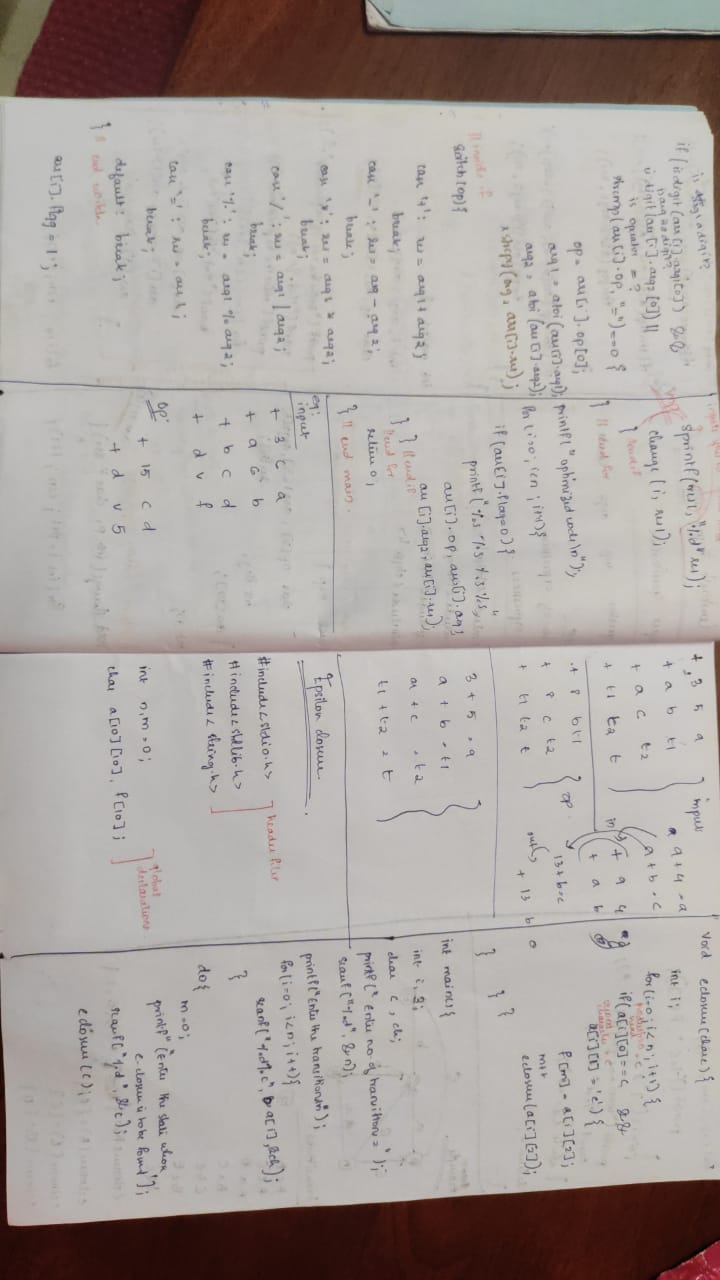 is arg1 a digit?
if (isdigit(arr[i].arg1[0]) &&
is arg2 a digit?
isdigit(arr[i].arg2[0]) ||
is operator = ?
strcmp(arr[i].op, "=") == 0 {
op = arr[i].op[0];
arg1 = atoi(arr[i].arg1);
arg2 = atoi(arr[i].arg2);
// inside if
switch (op) {
case '+': res = arg1 + arg2;
break;
case '-': res = arg - arg2;
break;
case '*': res = arg1 * arg2;
break;
case '/': res = arg1 / arg2;
break;
case '%': res = arg1 % arg2;
break;
case '=': res = arg1;
break;
default: break;
} // end switch
arr[i].flag = 1;
sprintf(res1, "%d" res);
change(i, res1);
} // end if
} // end for
printf("optimized code\n");
for (i=0; i<n; i++) {
if (arr[i].flag=0) {
printf("%s %s %s %s,"
arr[i].op, arr[i].arg1
arr[i].arg2, arr[i].res);
} // end if
} // end for
return 0;
} // end main.
eg:
input
+ 3 c a
+ a 6 b
+ b c d
+ d v f
op:
+ 15 c d
+ d v 5
+, 3 5 a
+ a b t1
+ a c t2
+ t1 t2 t
input
a a+4 = a
a+b = c
in + a 4
+ a b
+ 8 b t1
+ 8 c t2
+ t1 t2 t
op.
13+b=c
out + 13 b
3 + 5 = a
a + b = t1
a + c = t2
t1 + t2 = t
Epsilon closure
#include<stdio.h>
#include<stdlib.h>
#include<string.h>
header files
int n, m=0;
char a[10][10], f[10];
global
declarations.
void eclosure(char c) {
int i;
for(i=0; i<n; i++) {
if(a[i][0]==c &&
a[i][1]='e') {
f[m] = a[i][2];
m++
eclosure(a[i][2]);
}
}
}
int main() {
int i, j;
char c, ch;
printf("Enter no. of transitions = ");
scanf("%d", &n);
printf("Enter the transitions\n");
for(i=0; i<n; i++) {
scanf("%s%c", a[i], &ch);
}
do {
m=0;
printf("Enter the state whose
e-closure is to be found");
scanf("%d", &c);
eclosure(c);